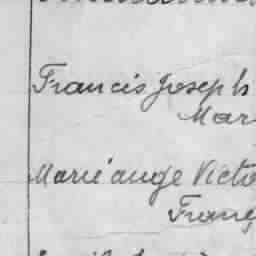 Francis Joseph
Mar
Marie ange Victo
Franç